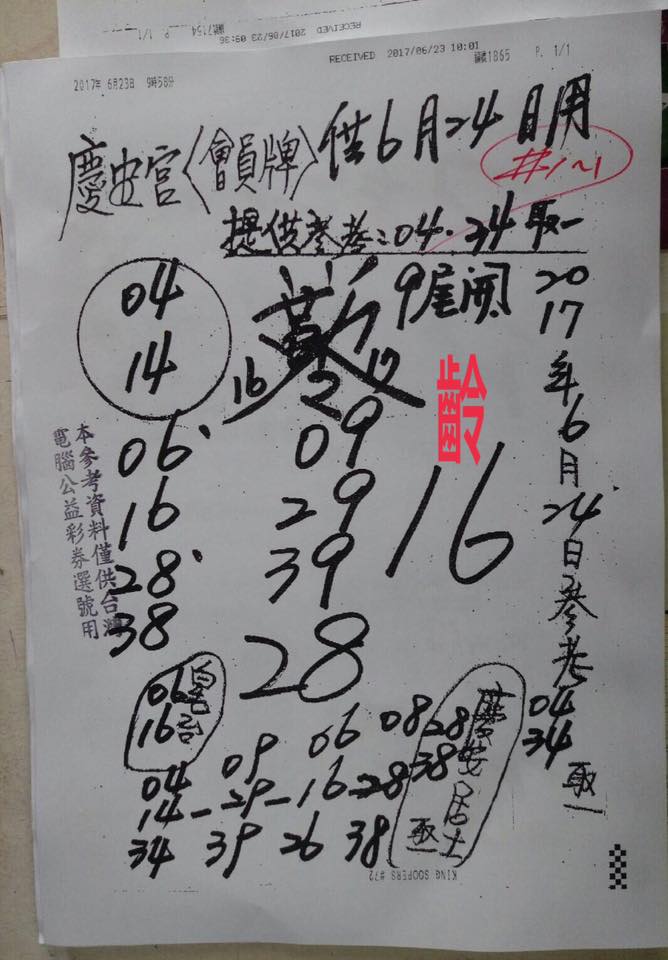 RECEIVED 2017/06/23 09:36 7154 P. 1/1
RECEIVED 2017/06/23 10:01 1865 P. 1/1
2017年 6月23日 9時58分
慶安宮〈會員牌〉供6月24日用
#1~1
提供參考:04.34取一
04
14
9尾開
16 2 17
齡
16
06
16
28
38
09
29
39
28
本參考資料僅供台灣
電腦公益彩券選號用
2017年6月24日參考04 34取一
06
16
04
14-29-16-28
34 39 26 38
09 06 08 28
38
慶安居士
取一
KING SOOPERS #72